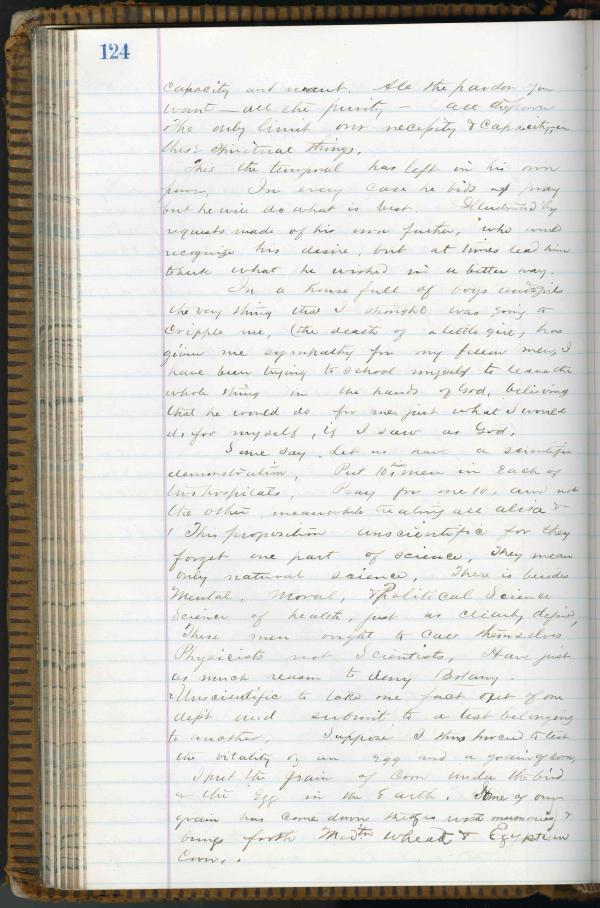 124
capacity and want. All the pardon you
want — all the purity — all the power
The only limit our necessity & capacity, in
these spiritual things.
This the temporal has left in his own
power. In every case he bids us pray
but he will do what is best. Illustrated by
requests made of his own father, who would
recognize his desire, but at times lead him
to seek what he wished in a better way.
In a house full of boys and girls
the very thing that I thought was going to
cripple me, (the death of a little girl, has
given me sympathy for my fellow men, I
have been trying to school myself to leave the
whole thing in the hands of God, believing
that he would do for me just what I would
do for myself, if I saw as God.
Some say. Let us have a scientific
demonstration, Put 10 men in each of
two hospitals, Pray for one 10, and not
the other, meanwhile treating all alike &
1 This proposition unscientific for they
forget one part of science, They mean
only natural science, There is besides
Mental, Moral, & Political Science
Science of health, just as clearly defined,
These men ought to call themselves
Physicists not Scientists, Have just
as much reason to deny Botany.
Unscientific to take one fact out of one
dep't and submit to a test belonging
to another, Suppose I to test
the vitality of an Egg and a grain of corn,
I put the grain of Corn under the bird
& the Egg in the Earth. Some of our
grain has come down with mummies &
brings forth wheat & Egyptian
Corn.